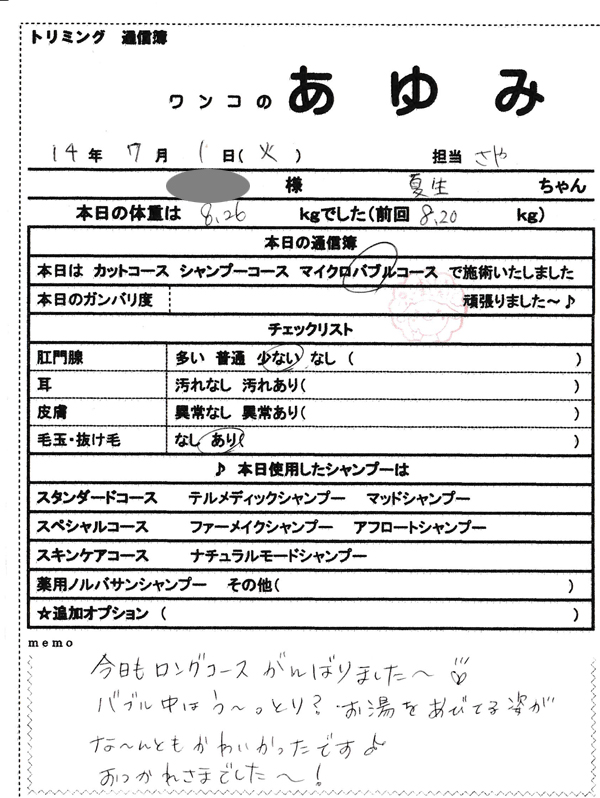 トリミング 通信簿
ワンコの あゆみ
14年 7月 1日(火) 担当 さや
様 夏生 ちゃん
本日の体重は 8.26 kgでした(前回 8.20 kg)
本日の通信簿
本日は カットコース シャンプーコース マイクロバブルコース で施術いたしました
本日のガンバリ度 頑張りました～♪
チェックリスト
肛門腺 多い 普通 少ない なし ( )
耳 汚れなし 汚れあり( )
皮膚 異常なし 異常あり( )
毛玉・抜け毛 なし あり( )
♪ 本日使用したシャンプーは
スタンダードコース テルメディックシャンプー マッドシャンプー
スペシャルコース ファーメイクシャンプー アフロートシャンプー
スキンケアコース ナチュラルモードシャンプー
薬用ノルバサンシャンプー その他( )
☆追加オプション ( )
memo
今日もロングコース がんばりました～
バブル中はう～っとり？お湯をあびてる姿が
な～んともかわいかったです♪
おつかれさまでした～！